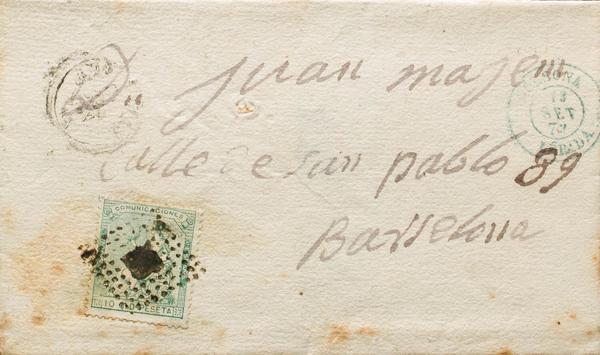 Dn Juan majem
Calle de san pablo 89
Barselona
COMUNICACIONES
10 CS DE PESETA
13
SET
73